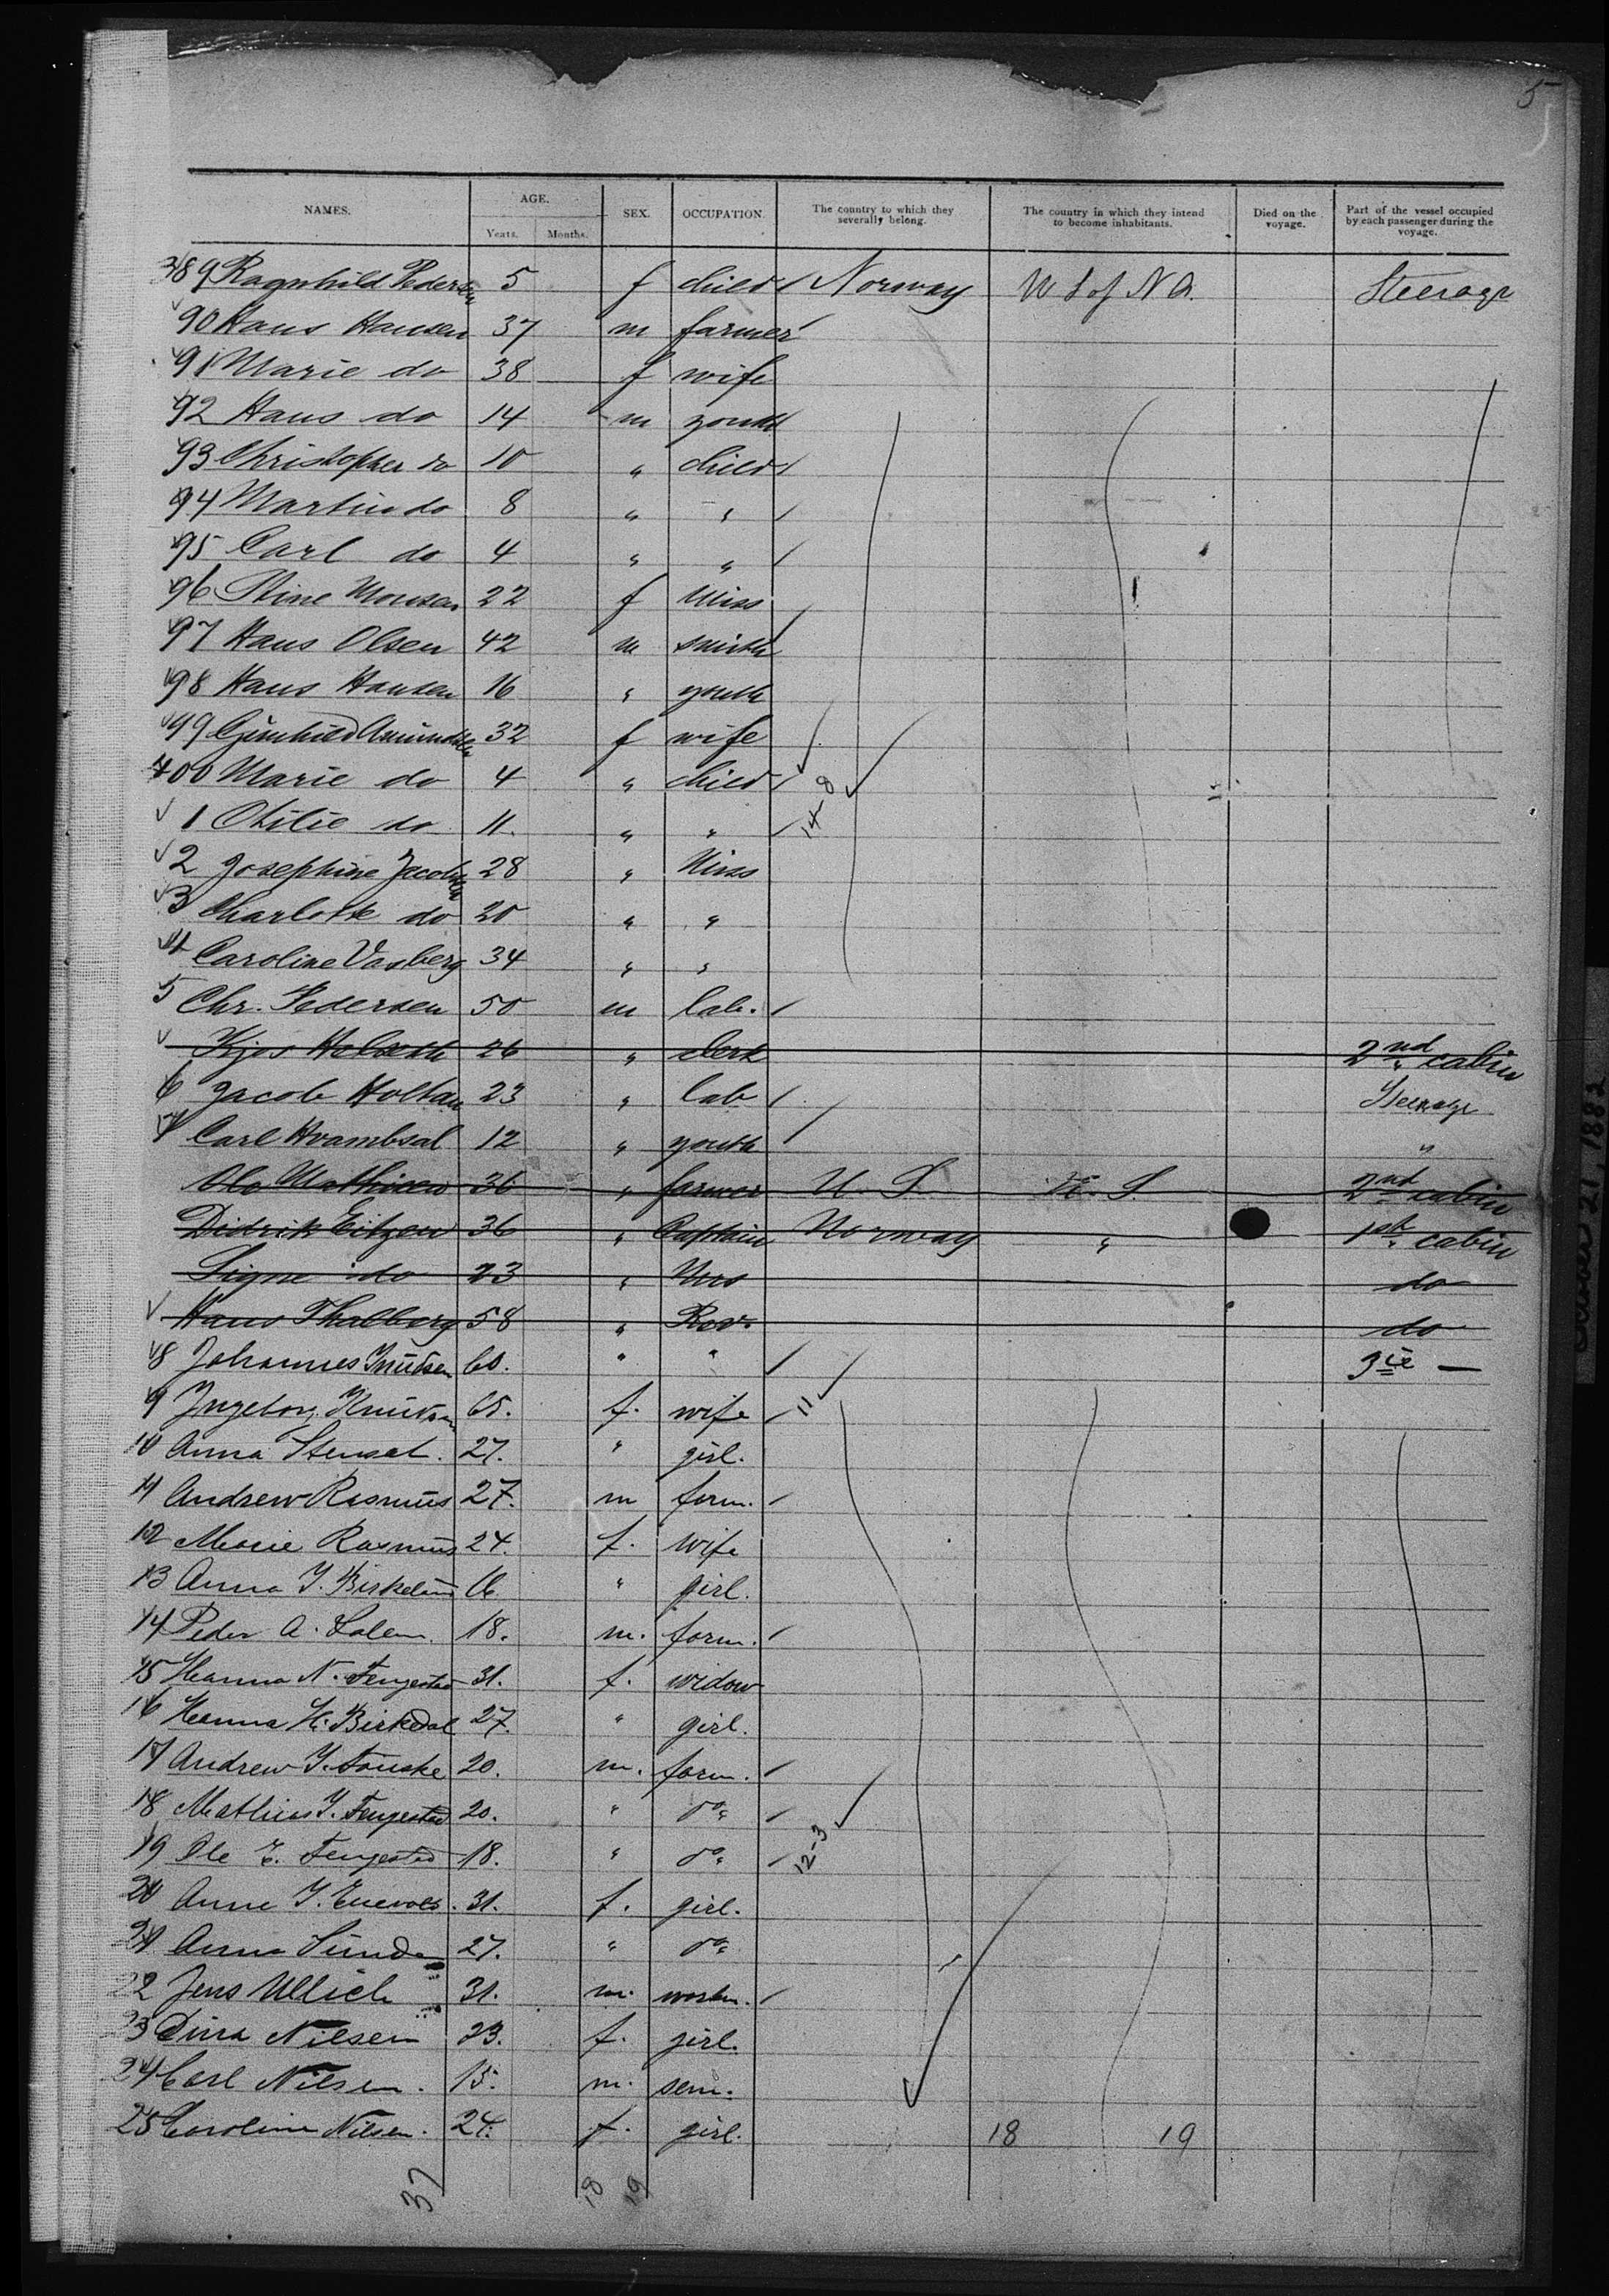 5
NAMES. AGE. Years. Months. SEX. OCCUPATION. The country to which they severally belong. The country in which they intend to become inhabitants. Died on the voyage. Part of the vessel occupied by each passenger during the voyage.
389 Ragnhild Pedersen 5 f child Norway U S of N A. Steerage
90 Hans Hansen 37 m farmer
91 Marie do 38 f wife
92 Hans do 14 m youth
93 Christopher do 10 " child
94 Martin do 8 " "
95 Carl do 4 " "
96 Stine Monsen 22 f Miss
97 Hans Olsen 42 m smith
98 Hans Hansen 16 " youth
99 Gunhild Amundsen 32 f wife
400 Marie do 4 " child 14-8
1 Otilie do 11. " "
2 Josephine Jacobsen 28 " Miss
3 Charlotte do 20 " "
4 Caroline Vasberg 34 " "
5 Chr. Pedersen 50 m lab.
Kjos Halseth 26 " clerk 2nd cabin
6 Jacob Holtan 23 " lab Steerage
7 Carl Hvambsal 12 " youth "
Ole Mathisen 36 " farmer U. S. U. S. 2nd cabin
Didrik Eitzen 36 " Captain Norway " 1st cabin
Signe do 23 " Mrs do
Hans Thalberg 58 " Rev. do
8 Johannes Knutsen 60. " " 3ie —
9 Ingeborg Knutsen 65. f. wife 11
10 Anna Stensel. 27. " girl.
11 Andrew Rasmus 27. m farm.
12 Marie Rasmus 24. f. wife
13 Anna Y. Birkelund 16 " girl.
14 Peder A. Salem. 18. m. farm.
15 Hanna N. Fengestad 31. f. widow
16 Hanna H. Birkedal 27. " girl.
17 Andrew Y. 20. m. farm.
18 Mathias Y. Fengestad 20. " do
19 Ole E. Fengestad 18. " do 12-3
20 Anne Y. 31. f. girl.
21 Anna Sunde 27. " do
22 Jens Ullich 31. m. workm.
23 Dina Nilsen 23. f. girl.
24 Carl Nilsen. 15. m.
25 Caroline Nilsen. 24. f. girl. 18 19
37 18 19
21, 1882